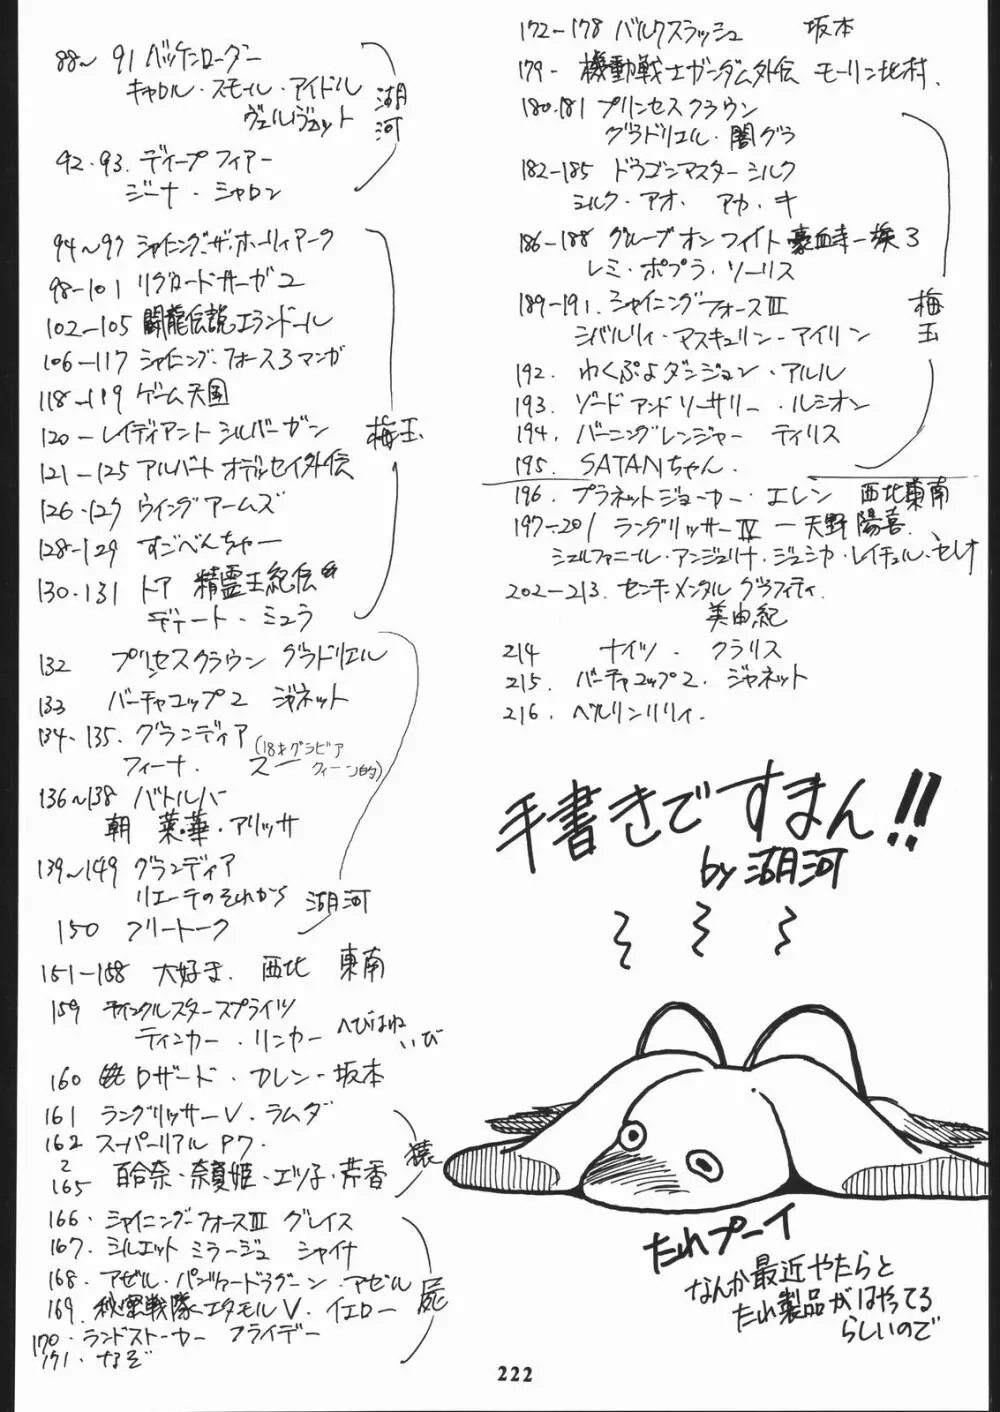 88〜91 バッケンローダー
キャロル・スモール・アイドル
ヴェルヴェット
湖河
92・93. ディープフィアー
ジーナ・シャロン
94〜97 シャイニング・ザ・ホーリィアーク
98-101 リグロードサーガ2
102-105 闘龍伝説エランドール
106-117 シャイニング・フォース3マンガ
118-119 ゲーム天国
120-レイディアントシルバーガン
梅玉
121-125 アルバートオデッセイ外伝
126・127 ウイングアームズ
128-129 すごべんちゃー
130・131 トア 精霊王紀伝
ディート・ミュラ
132 プリンセスクラウン グラドリエル
133 バーチャコップ2 ジャネット
134・135. グランディア
フィーナ. スー (18才グラビアクィーン的)
136〜138 バトルバ
朝 菜・華・アリッサ
139〜149 グランディア
リエーテのそれから 湖河
150 フリートーク
151-158 大好き. 西北 東南
159 ティンクルスタースプライツ
ティンカー・リンカー へびはね いび
160 銃ロザード・カレン-坂本
161 ラングリッサーV・ラムダ
162 スーパーリアルP7.
〜165 百合奈・奈賀姫・エツ子・芹香
猿
166・シャイニング・フォースIII グレイス
167.シルエットミラージュ シャイナ
168・アゼル・パンツァードラグーン・アゼル
屍
169.秘密戦隊メタモルV・イエロー
170・ランドストーカー フライデー
171・なぞ
172-178 バルクスラッシュ 坂本
179- 機動戦士ガンダム外伝 モーリン北村.
180.181 プリンセスクラウン
グラドリエル・闇グラ
182-185 ドラゴンマスターシルク
シルク・アオ. アカ・キ
186-188 グルーブオンファイト豪血寺一族3
レミ・ポプラ・ソーリス
189-191. シャイニングフォースIII
シバルリィ・アスキュリン-アイリン
梅玉
192. わくぷよダンジョン・アルル
193. ソードアンドソーサリー・ルシオン
194. バーニングレンジャー ティリス
195. SATANちゃん.
196. プラネットジョーカー・エレン 西北東南
197-201 ラングリッサーIV -天野陽喜
シェルファニール・アンジェリナ・ジェシカ・レイチェル・セレナ
202-213. センチメンタルグラフィティ.
美由紀
214 ナイツ・クラリス
215. バーチャコップ2. ジャネット
216. ベルリンリリィ.
手書きですまん!!
by 湖河
たれプーイ
なんか最近やたらと
たれ製品がはやってる
らしいので
222